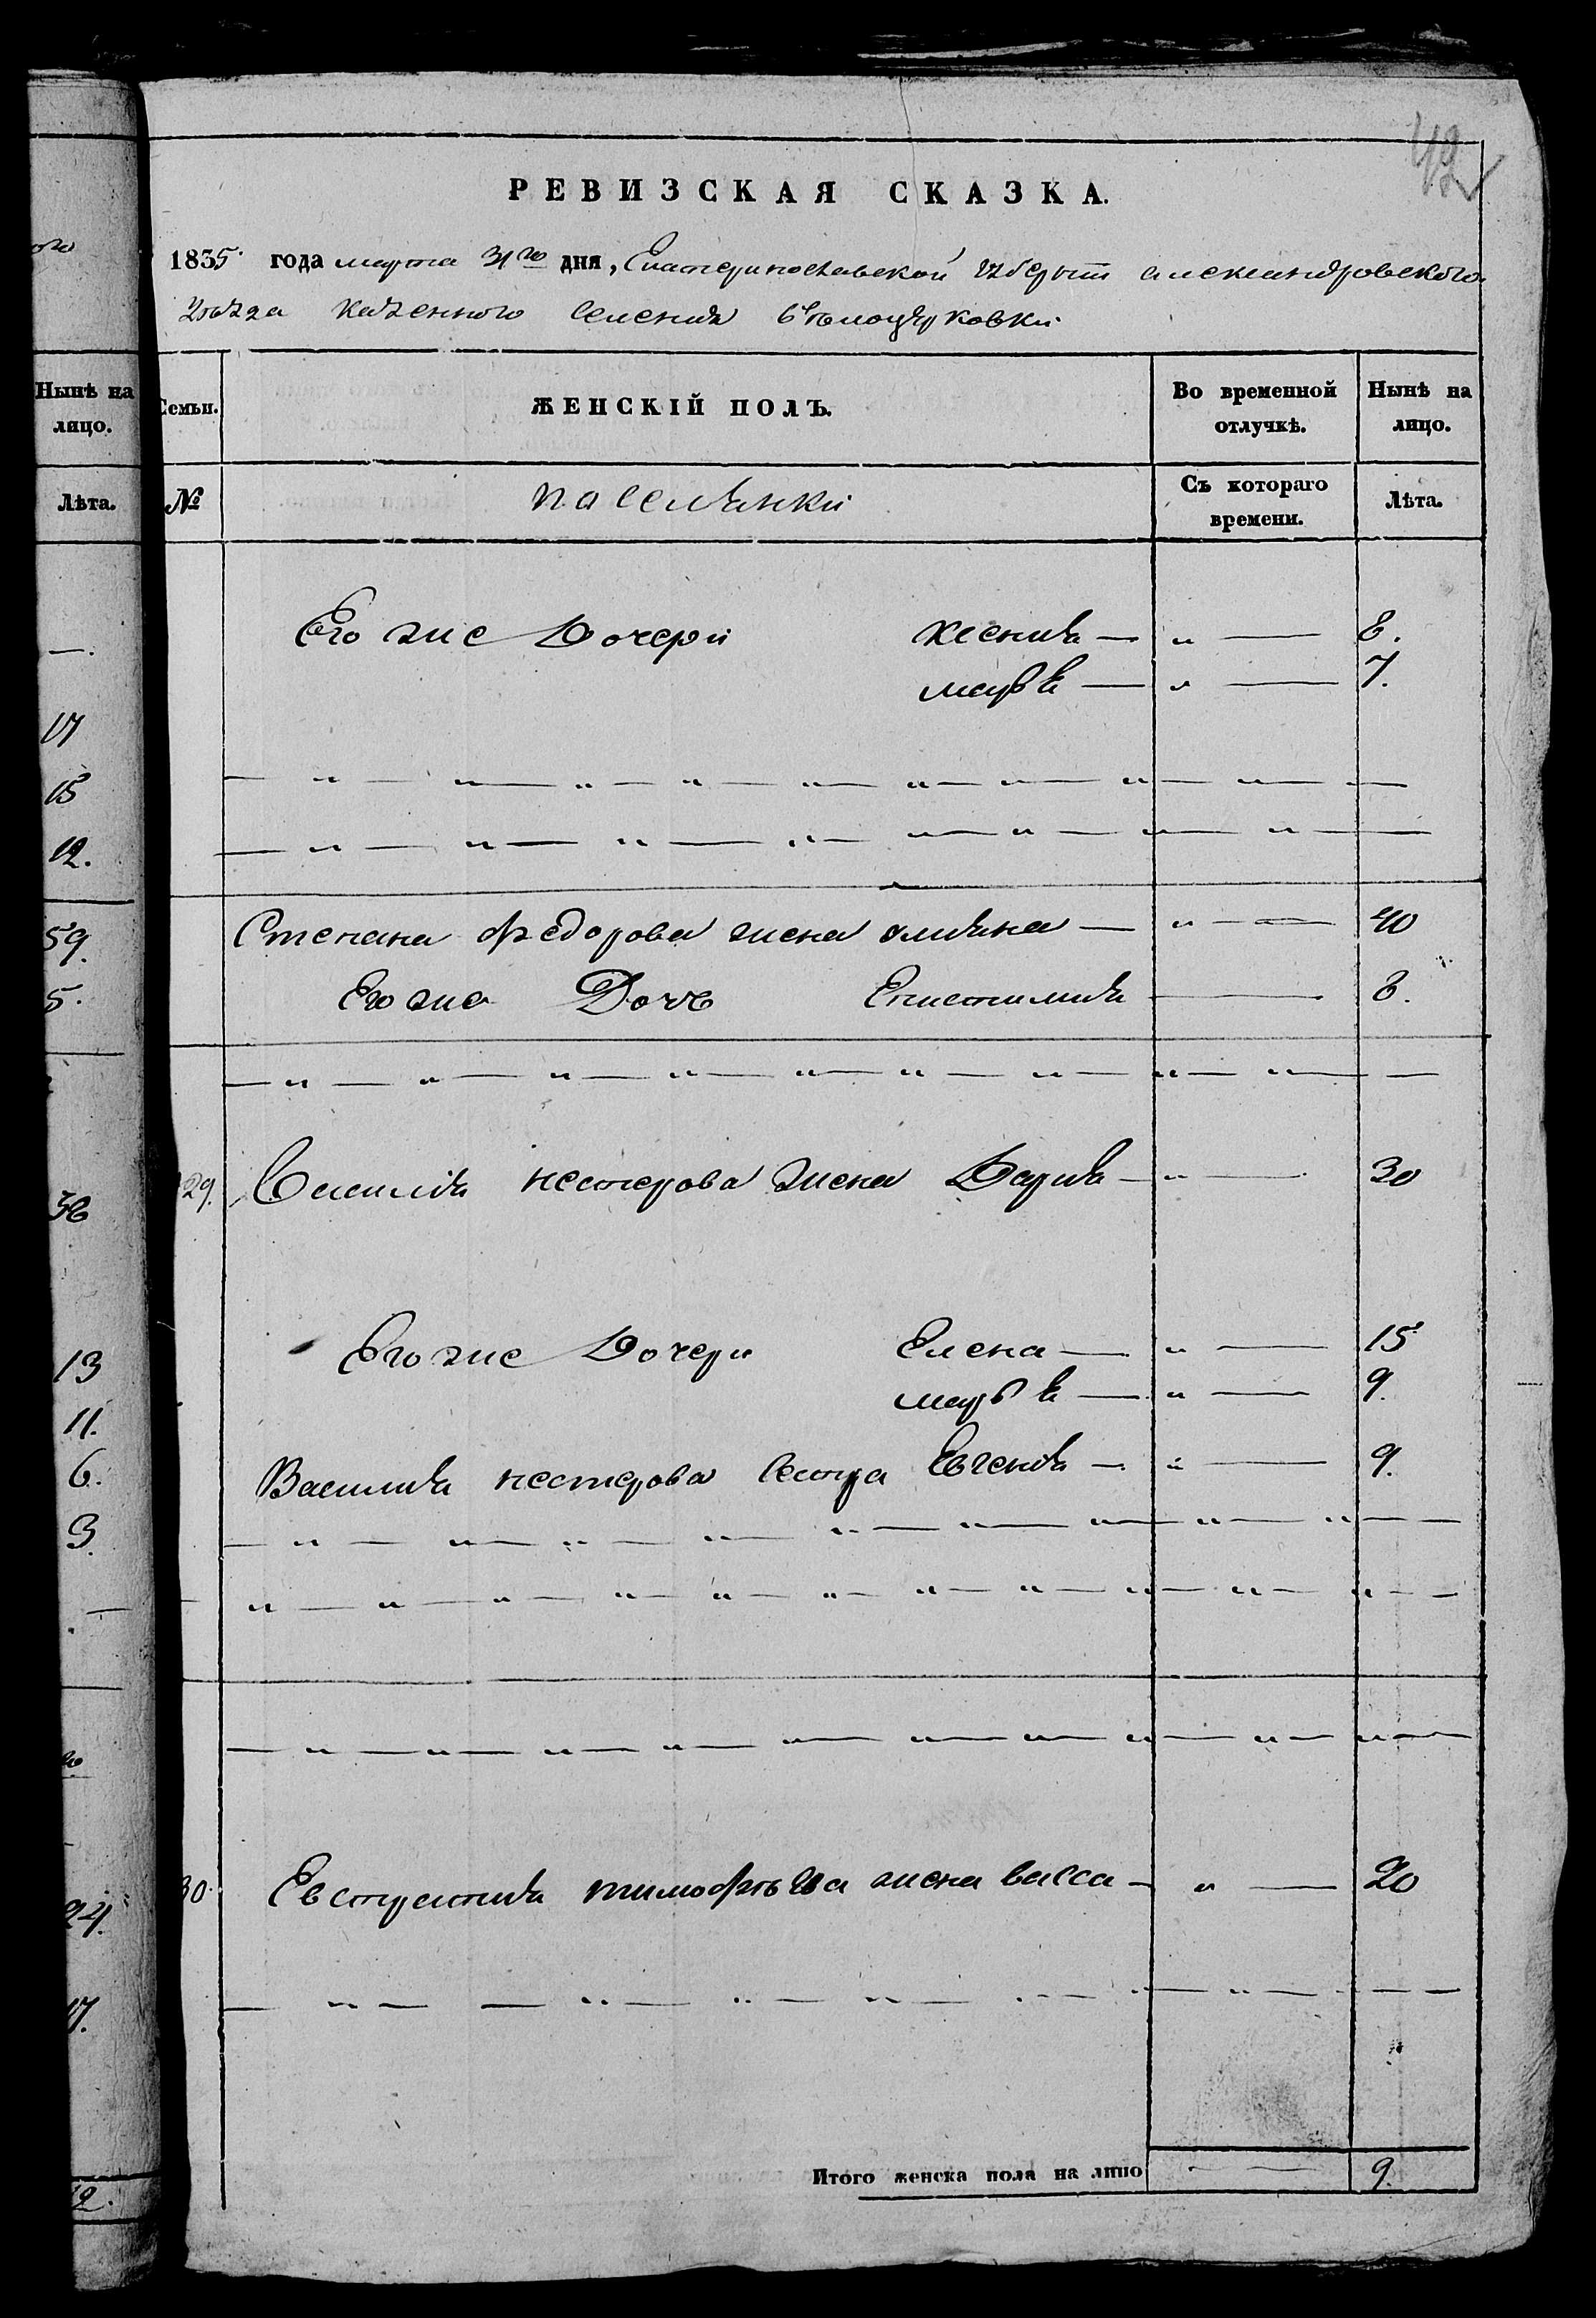 ого
42
РЕВИЗСКАЯ СКАЗКА.
1835 года марта 31го дня, Екатеринославской губернии александровского
уѣзда казенного селения бѣлоцерковки
Нынѣ на лицо.
Семьи.
ЖЕНСКІЙ ПОЛЪ.
Во временной отлучкѣ.
Нынѣ на лицо.
Лѣта.
№
поселянки
Съ котораго времени.
Лѣта.
Его же Дочери ксения — „ — 8.
марѳа — „ — 7.
17
15
12.
59. Степана федорова жена улияна — „ — 40
5. Его же Дочь Епистимия — 8.
29. Василия нестерова жена Дария — „ — 30
13 Его же Дочери Елена — „ — 15
11. марѳа — „ — 9.
6. Василия нестерова сестра Евгения — „ — 9.
3.
24. 30. Евстратия тимофѣева жена васса — „ — 20
17.
Итого женска пола на лицо — 9.
12.